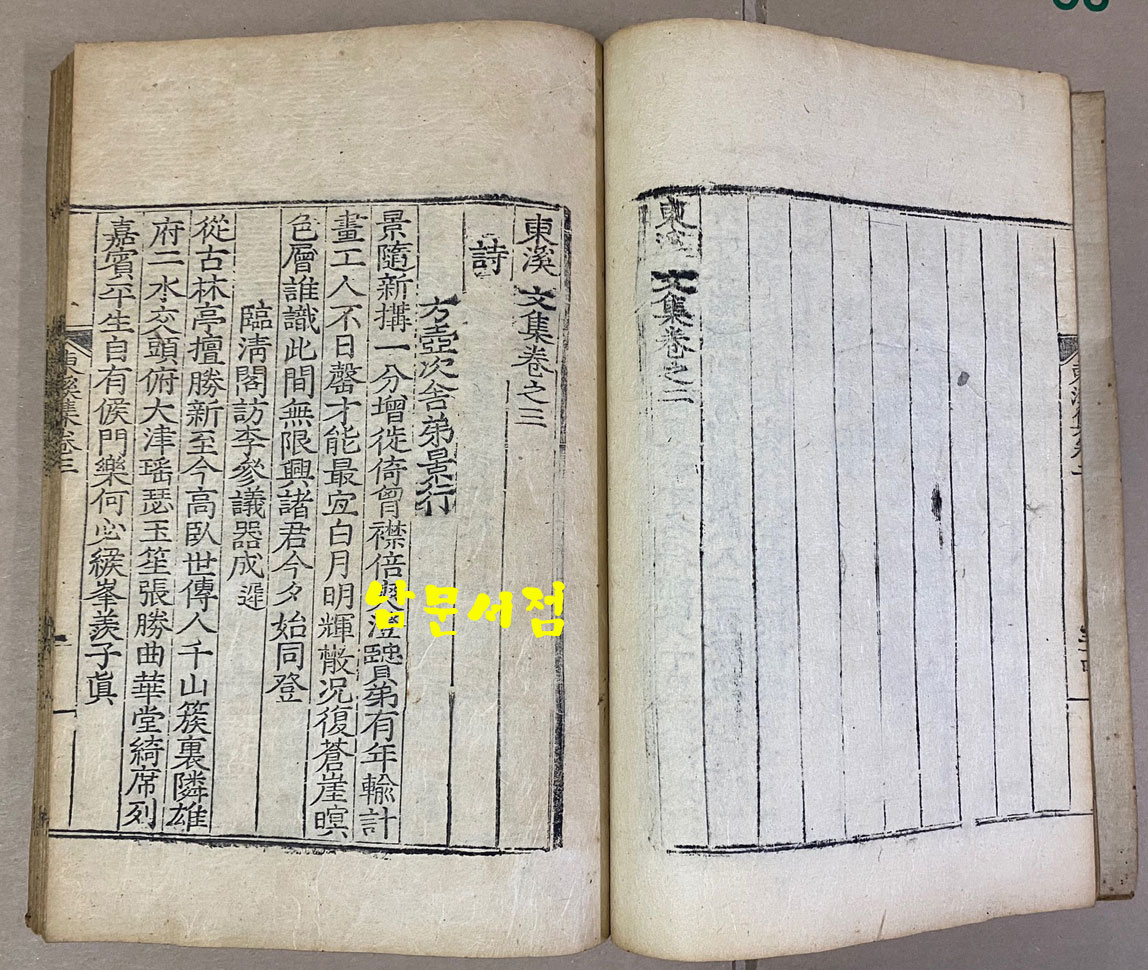 東溪文集卷之二
東溪文集卷之三
詩
方壺次舍弟景行
景隨新搆一分增徙倚曾襟倍爽澄賢弟有年輸計
畫工人不日罄才能最宜白月明輝散況復蒼崖暝
色層誰識此間無限興諸君今夕始同登
臨淸閣訪李參議器成遲
從古林亭擅勝新至今高臥世傳人千山簇裏隣雄
府二水交頭俯大津瑤瑟玉笙張勝曲華堂綺席列
嘉賓平生自有候門樂何必緱峯羨子眞
東溪集卷三
남문서점